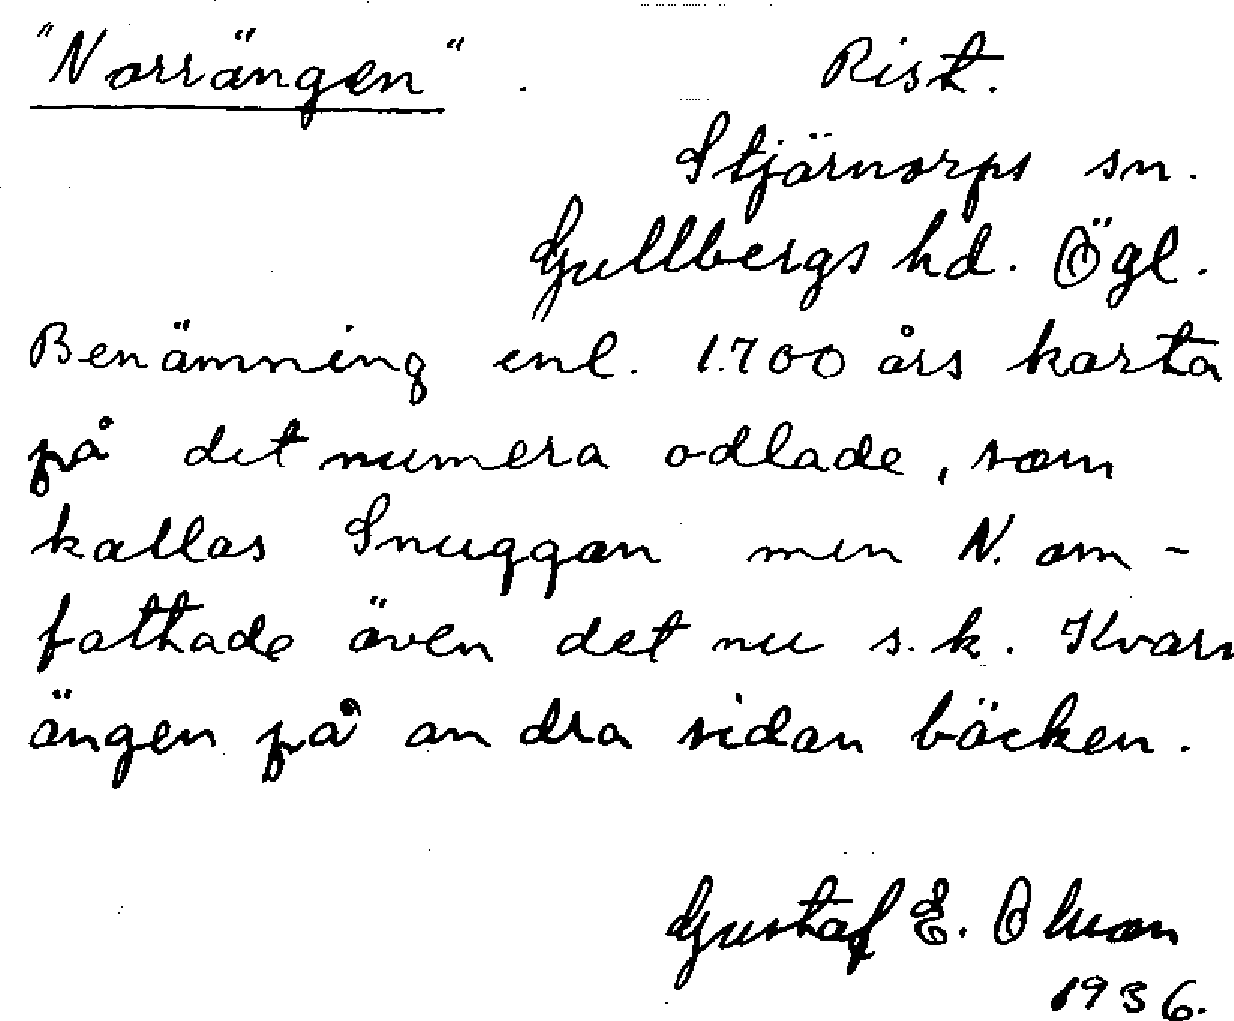 "Norrängen". Rist.
Stjärnorps sn.
Gullbergs hd. Ögl.
Benämning enl. 1.700 års karta
på det numera odlade, som
kallas Snuggan men N. om-
fattade även det nu s.k. Kvarn
ängen på andra sidan bäcken.
Gustaf E. Olsson
1936.